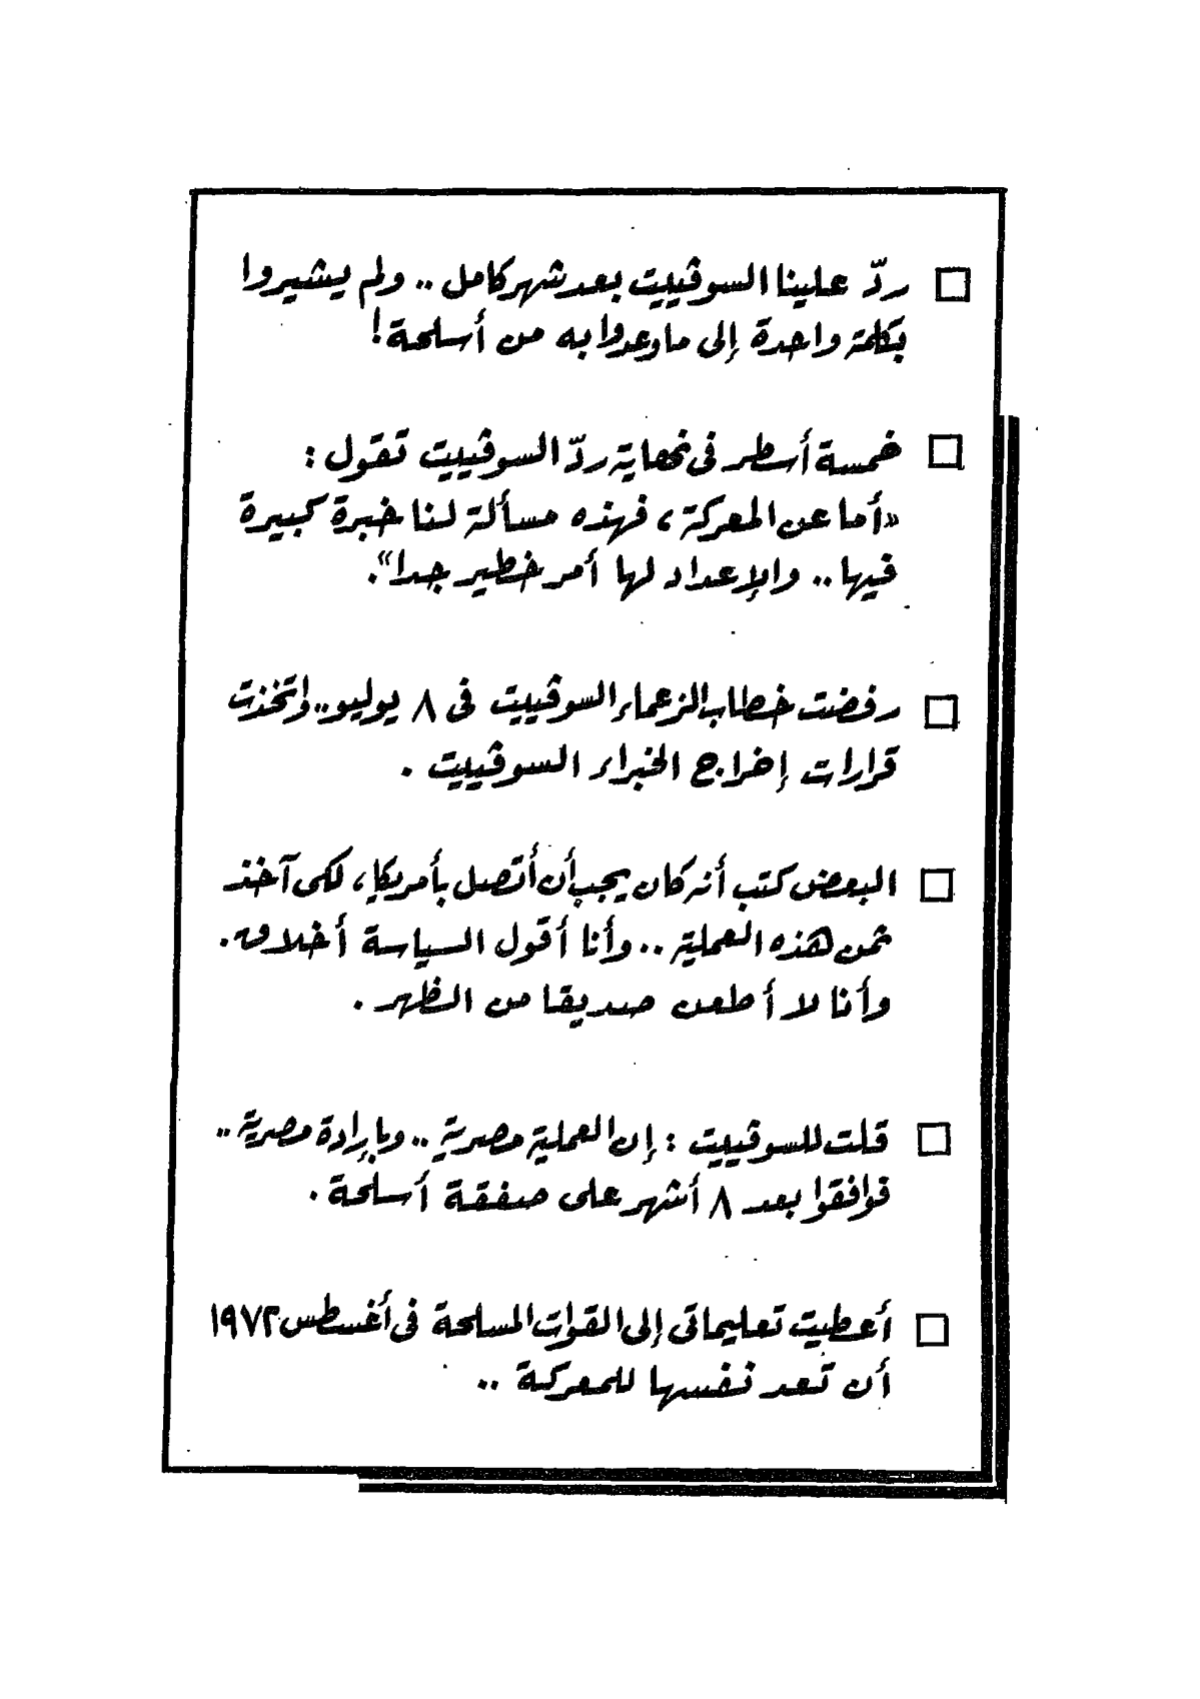 □ ردّ علينا السوڤييت بعد شهر كامل .. ولم يشيروا
بكلمة واحدة إلى ما وعدوا به من أسلحة !
□ خمسة أسطر فى نهاية ردّ السوڤييت تقول :
«أما عن المعركة ، فهذه مسألة لنا خبرة كبيرة
فيها .. والإعداد لها أمر خطير جدا».
□ رفضت خطاب الزعماء السوڤييت فى ٨ يوليو .. واتخذت
قرارات إخراج الخبراء السوڤييت .
□ البعض كتب أنه كان يجب أن أتصل بأمريكا ، لكى آخذ
ثمن هذه العملية .. وأنا أقول السياسة أخلاق .
وأنا لا أطعن صديقا من الظهر .
□ قلت للسوڤييت : إن العملية مصرية .. وبإرادة مصرية ..
فوافقوا بعد ٨ أشهر على صفقة أسلحة .
□ أعطيت تعليماتى إلى القوات المسلحة فى أغسطس ١٩٧٢
أن تعد نفسها للمعركة ..